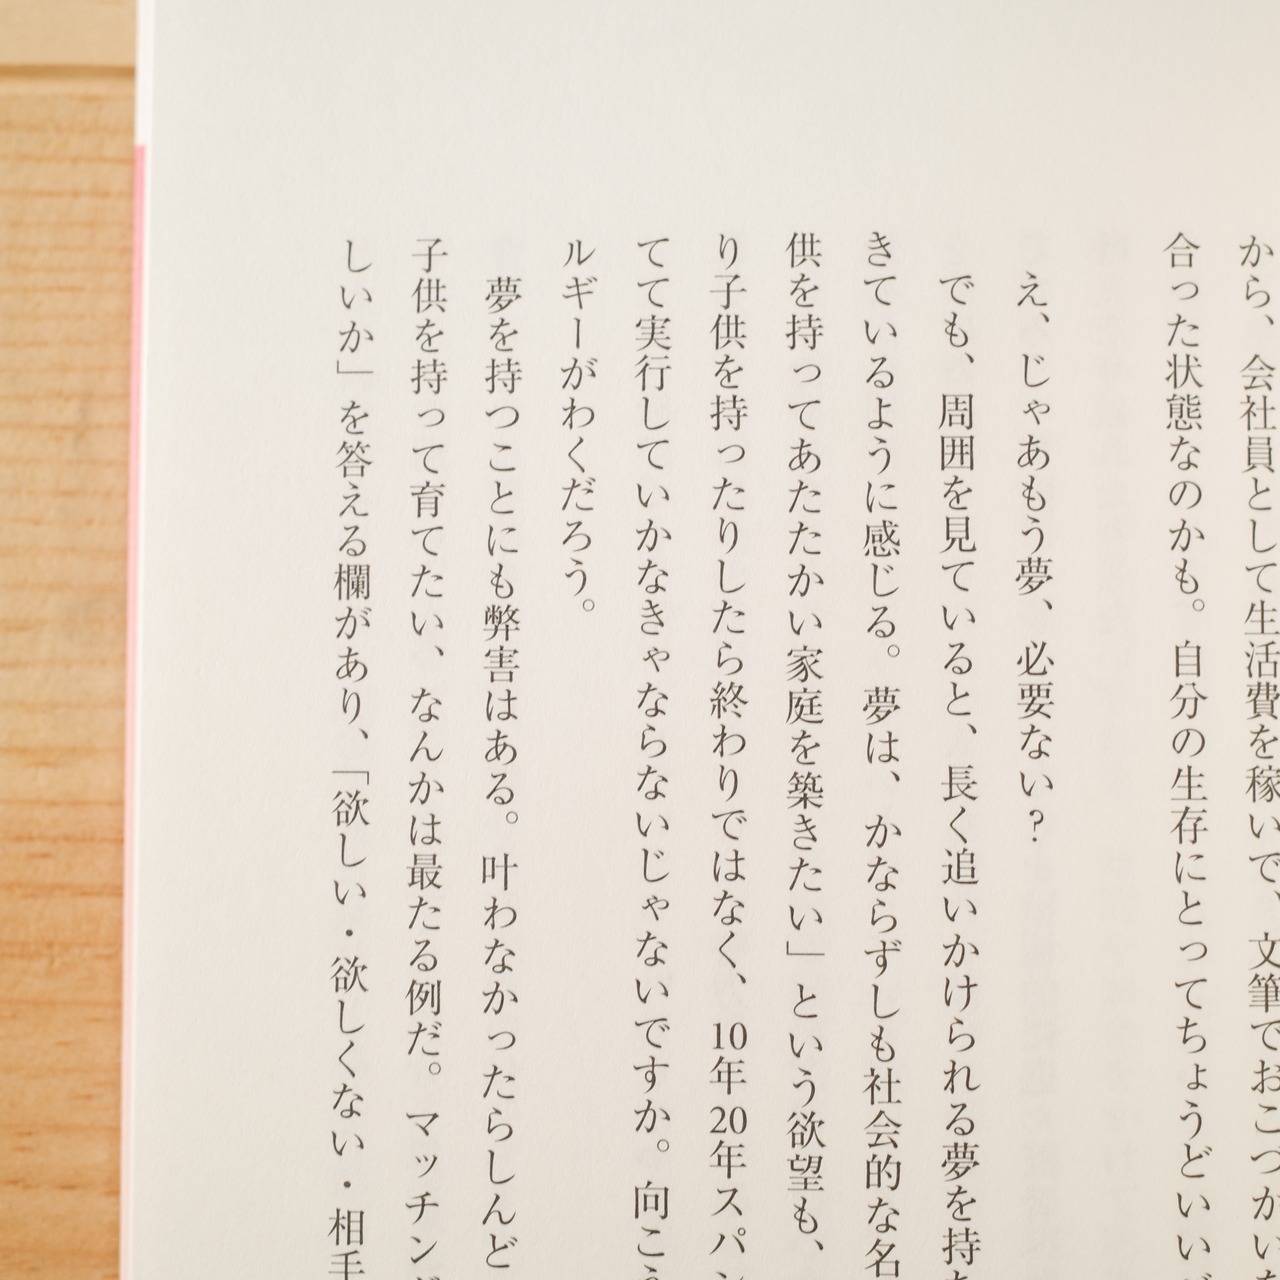 から、会社員として生活費を稼いで、文筆でおこづかい
合った状態なのかも。自分の生存にとってちょうどいい
え、じゃあもう夢、必要ない?
でも、周囲を見ていると、長く追いかけられる夢を持
きているように感じる。夢は、かならずしも社会的な名
供を持ってあたたかい家庭を築きたい」という欲望も、
り子供を持ったりしたら終わりではなく、10年20年スパ
てて実行していかなきゃならないじゃないですか。向こ
ルギーがわくだろう。
夢を持つことにも弊害はある。叶わなかったらしんど
子供を持って育てたい、なんかは最たる例だ。マッチン
しいか」を答える欄があり、「欲しい・欲しくない・相手